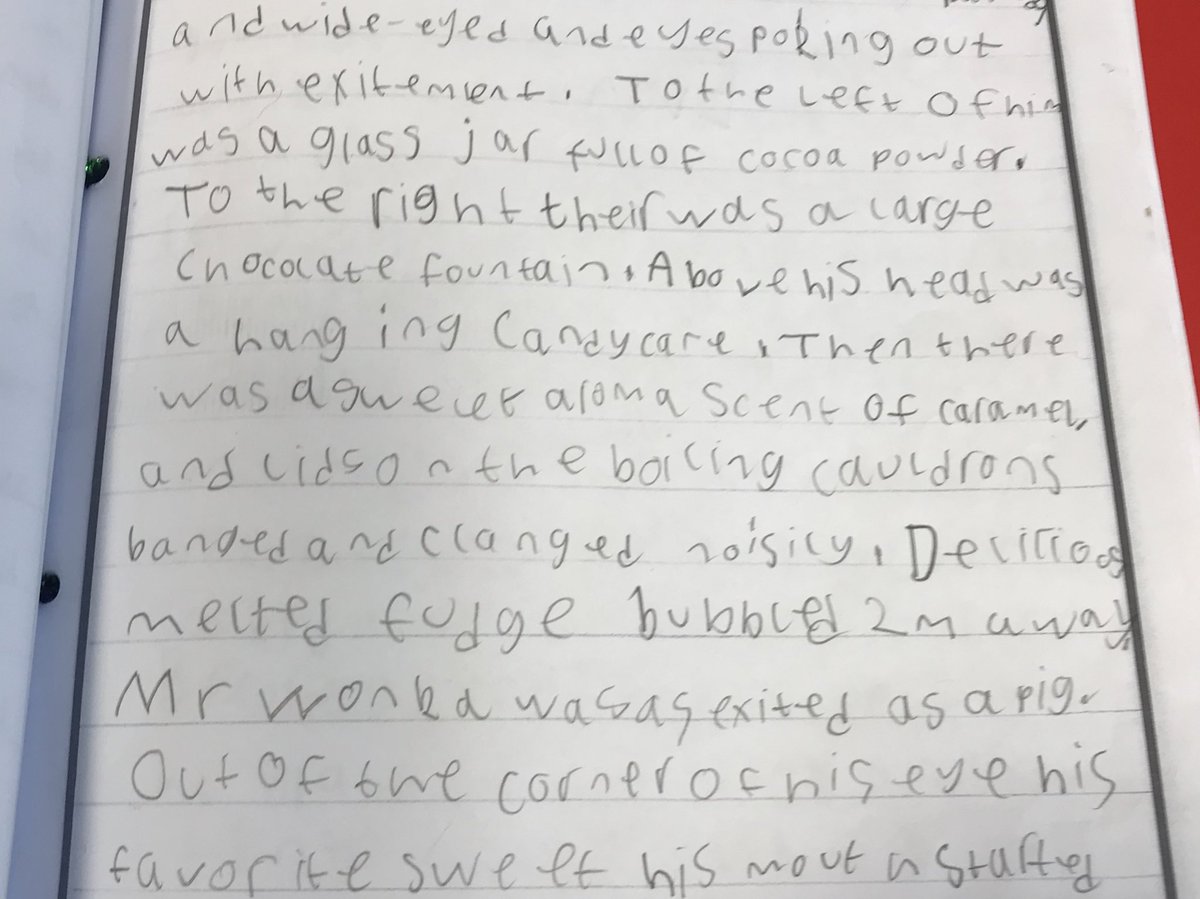 and wide-eyed and eyes poking out
with exitement. To the left of him
was a glass jar full of cocoa powder.
To the right their was a large
chocolate fountain. Above his head was
a hanging candycare. Then there
was a sweeet aroma scent of caramel,
and lids on the boiling cauldrons
banged and clanged noisily. Delitios
melted fudge bubbled 2m away
Mr wonka was as exited as a pig.
Out of the corner of his eye his
favorite sweet his mouth started